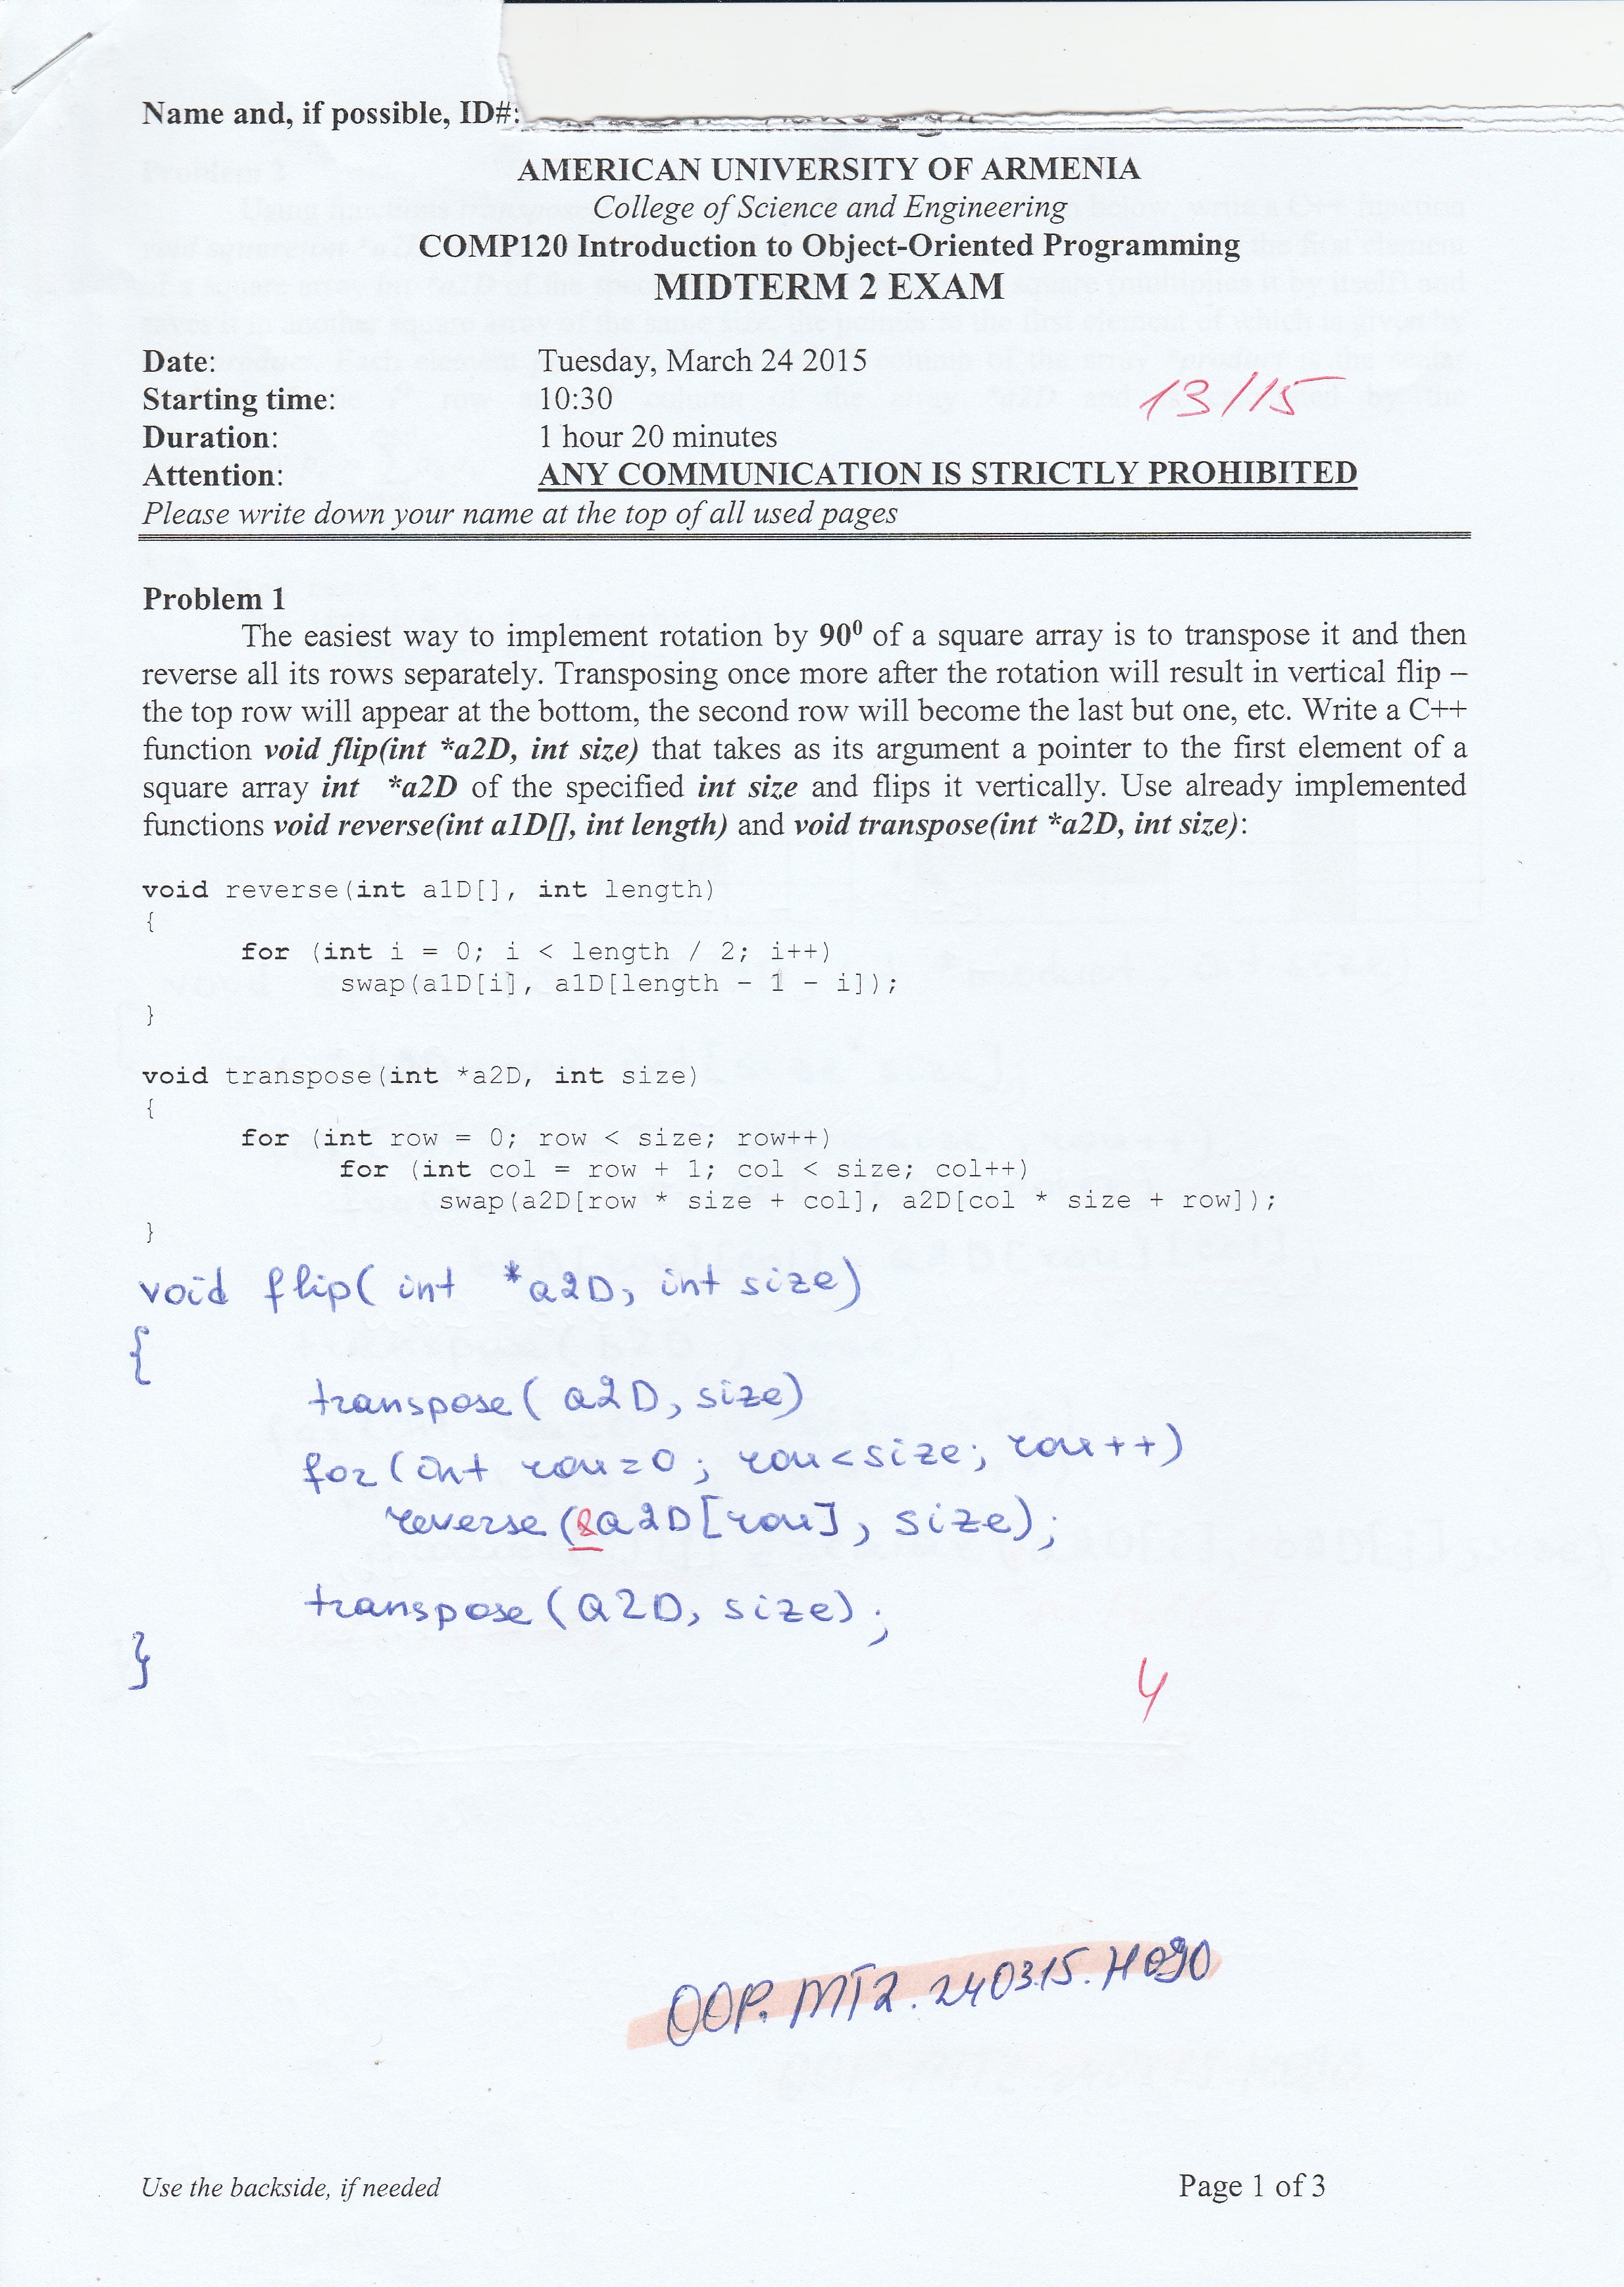 Name and, if possible, ID#:
AMERICAN UNIVERSITY OF ARMENIA
College of Science and Engineering
COMP120 Introduction to Object-Oriented Programming
MIDTERM 2 EXAM
Date: Tuesday, March 24 2015
Starting time: 10:30
13/15
Duration: 1 hour 20 minutes
Attention: ANY COMMUNICATION IS STRICTLY PROHIBITED
Please write down your name at the top of all used pages
Problem 1
The easiest way to implement rotation by 90⁰ of a square array is to transpose it and then
reverse all its rows separately. Transposing once more after the rotation will result in vertical flip –
the top row will appear at the bottom, the second row will become the last but one, etc. Write a C++
function void flip(int *a2D, int size) that takes as its argument a pointer to the first element of a
square array int *a2D of the specified int size and flips it vertically. Use already implemented
functions void reverse(int a1D[], int length) and void transpose(int *a2D, int size):
void reverse(int a1D[], int length)
{
for (int i = 0; i < length / 2; i++)
swap(a1D[i], a1D[length - 1 - i]);
}
void transpose(int *a2D, int size)
{
for (int row = 0; row < size; row++)
for (int col = row + 1; col < size; col++)
swap(a2D[row * size + col], a2D[col * size + row]);
}
void flip( int *a2D, int size)
{
transpose( a2D, size)
for(int row=0; row<size; row++)
reverse(&a2D[row], size);
transpose(a2D, size);
}
4
OOP.MT2.240315.H090
Use the backside, if needed Page 1 of 3